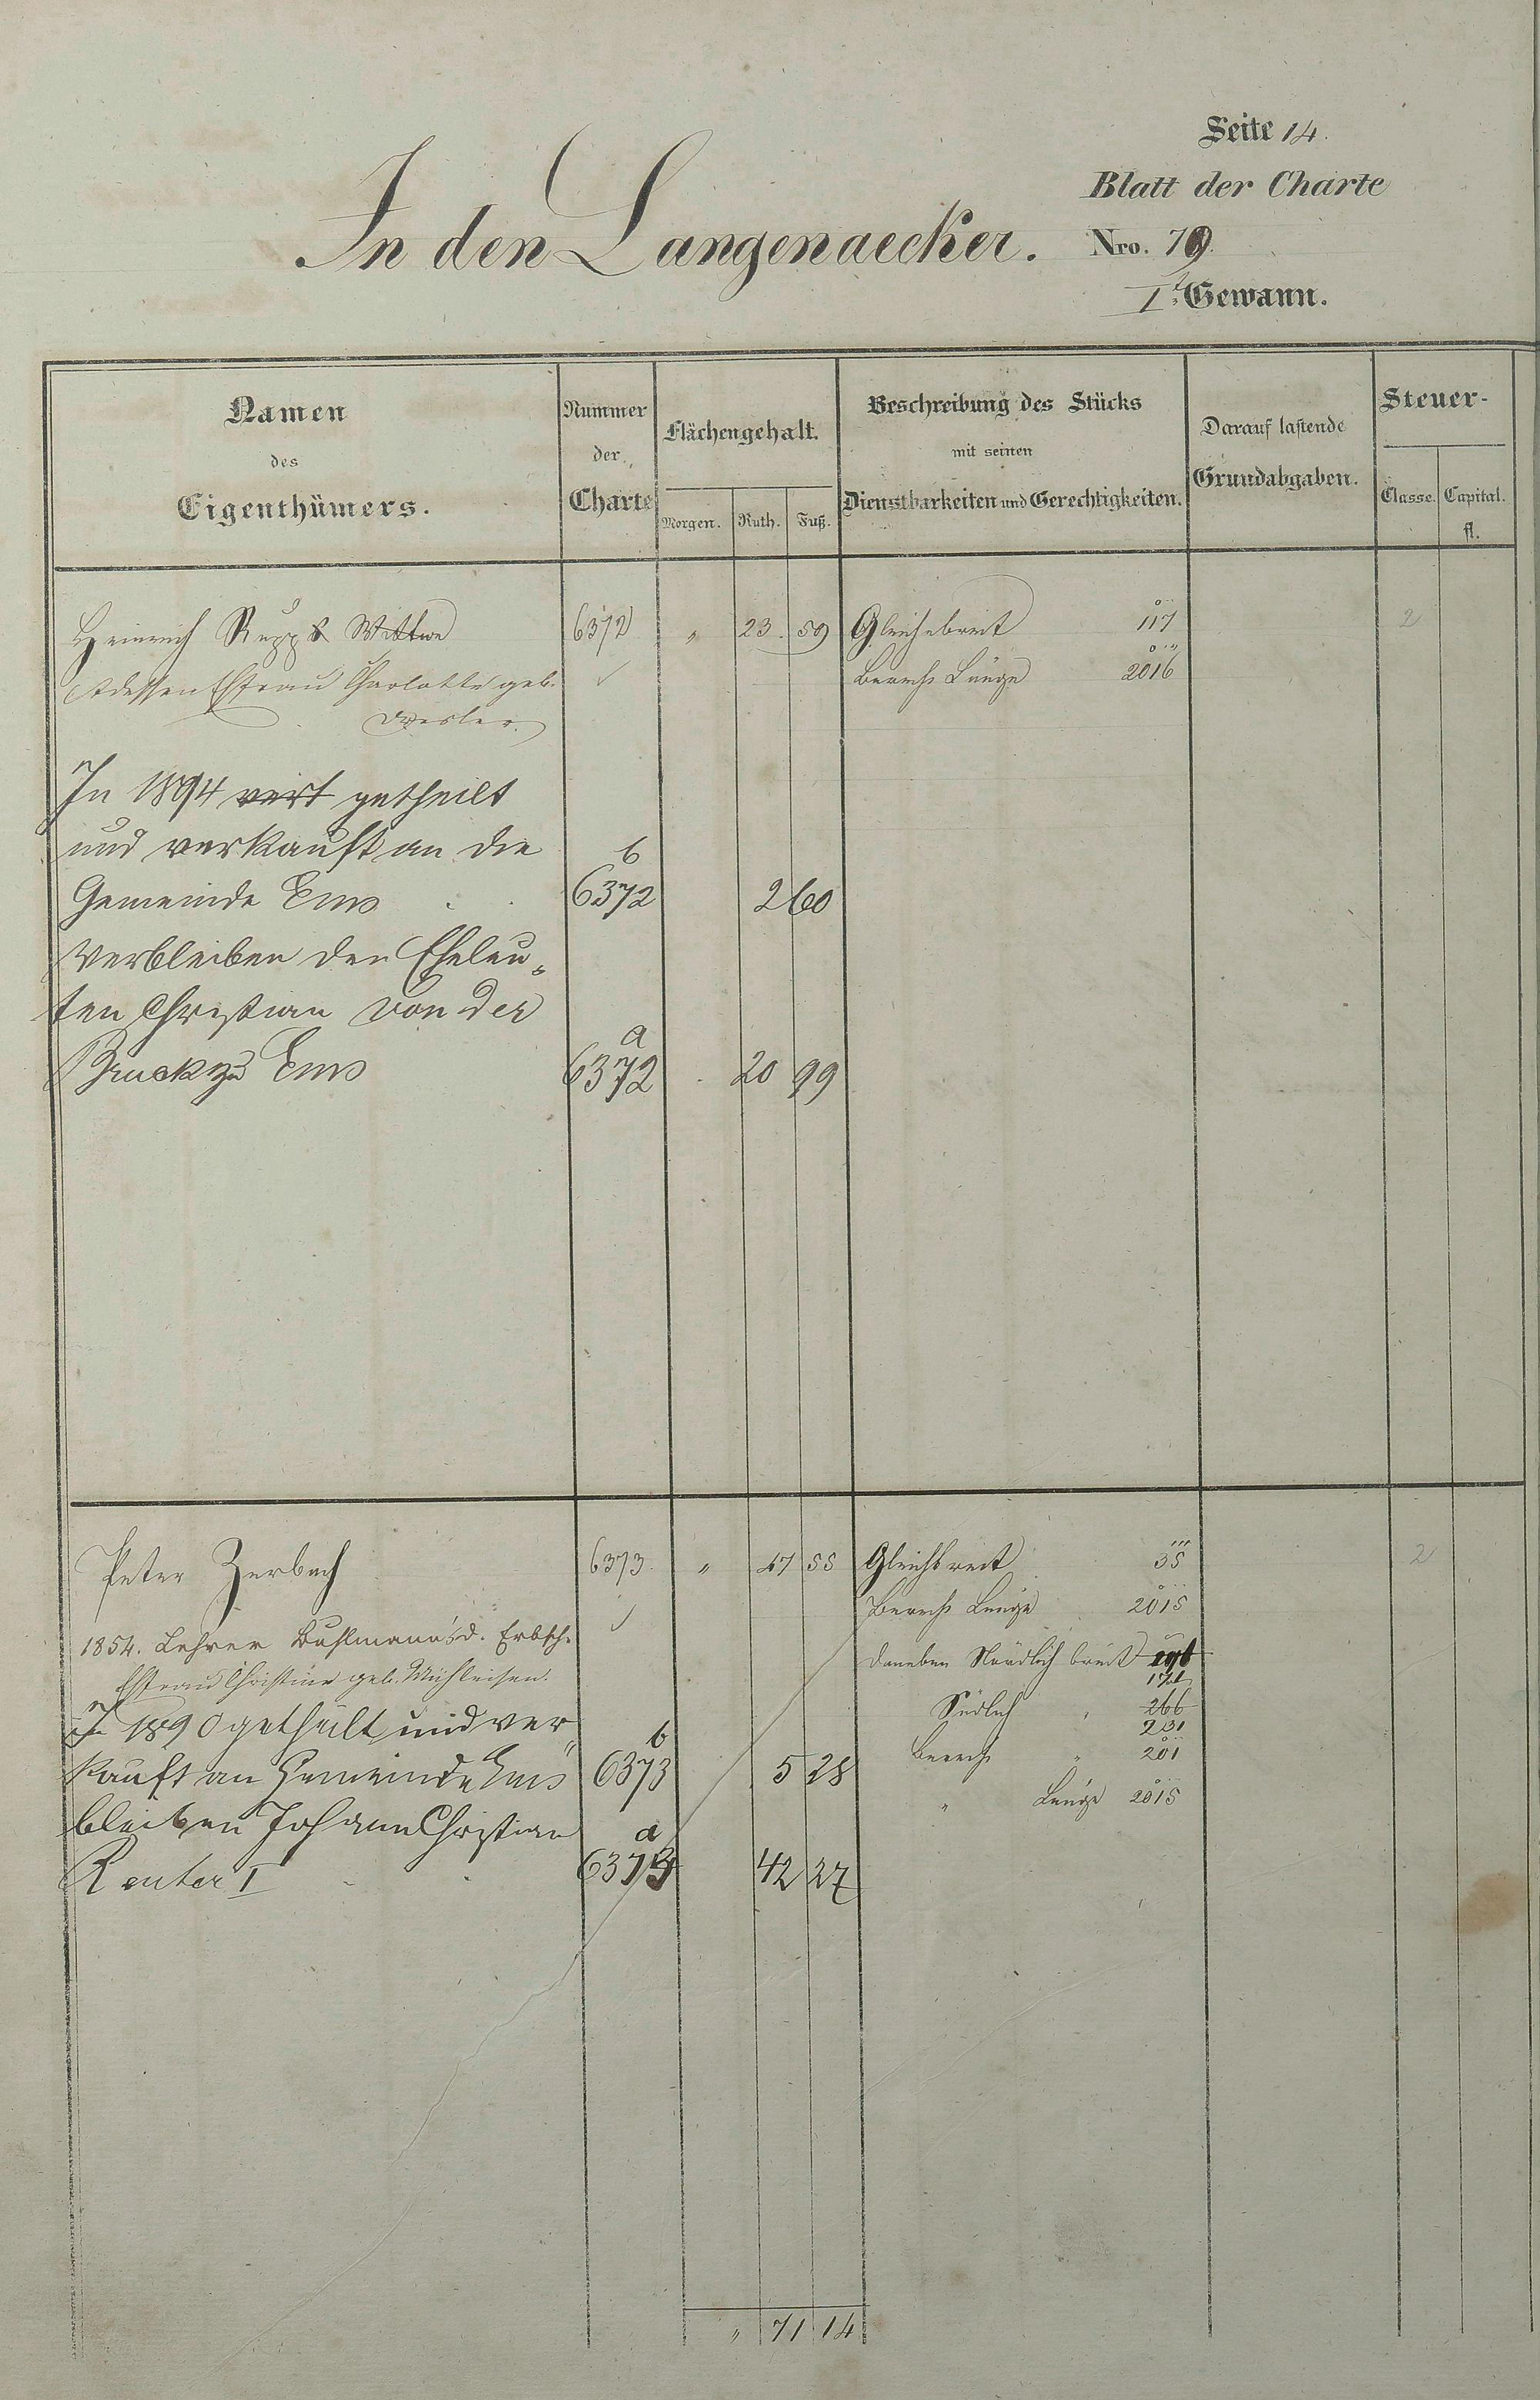 Seite 14.
Blatt der Charte
In den Langenaecker. Nro. 79.
I. Gewann.
Namen des Eigenthümers.
Nummer der Charte
Flächengehalt.
Morgen. Ruth. Fuß.
Beschreibung des Stücks mit seinen Dienstbarkeiten und Gerechtigkeiten.
Darauf lastende Grundabgaben.
Steuer-
Classe. Capital. fl.
Heinrich Rupp Wittwe 6372 " 23. 59 Gleichebreit 117 2
dessen Efrau Charlotte geb. Berech Länge 2016
In 1894 vert getheilt
und verkauft an die b
Gemeinde Ems 6372 2 60
verbleiben den Eheleu-
ten Christian von der a
Bruck zu Ems 6372 20 99
Peter Zerbach 6373. " 47 55 Gleichbreit 35 2
Berech Länge 2015
1854. Lehrer Buhlmann's d. Erbsch.
Efrau Christine geb. Mühleisen.
daneben Nördlich breit
Südlich " 266
231
In 1890 getheilt und ver- b
Berech " 201
kauft an Gemeinde Ems 6373 5 28
" Länge 2015
bleiben Johann Christian a
Reuter I 6373 42 27
" 71 14